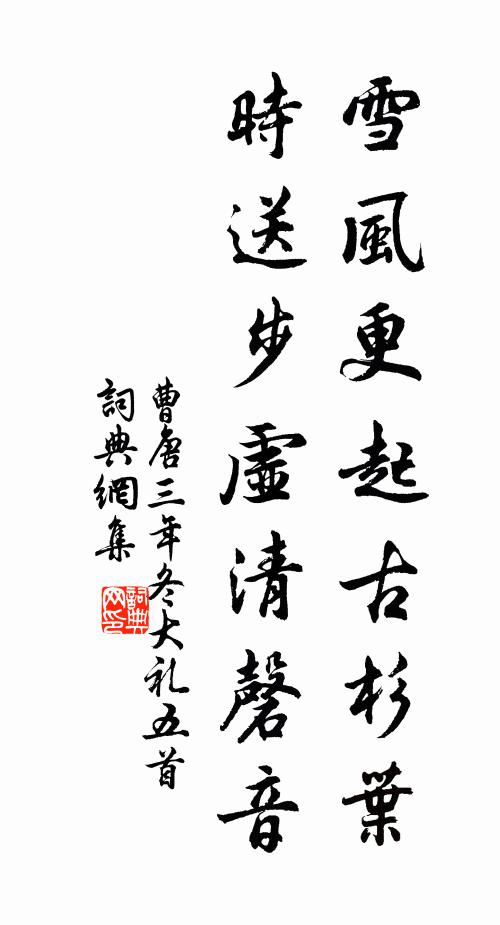 雪風更起古杉葉
時送步虛清磬音
曹唐三年冬大礼五首
詞典網集
詞典网印